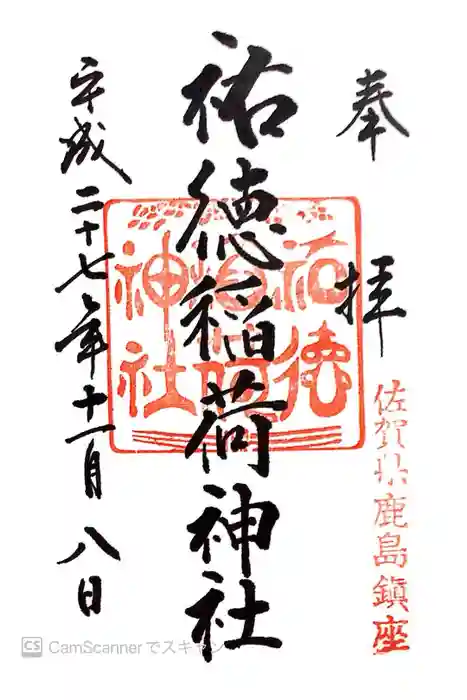 奉拝
佐賀県鹿島鎮座
祐徳稲荷神社
祐徳稲荷神社
平成二十七年十一月八日
CS CamScannerでスキャン